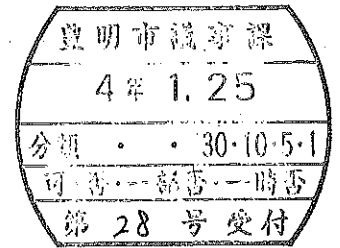 豊明市議事課
4年 1.25
分類 ・ ・ 30・10・5・1
可 否・一部否・時否
第 28 号受付